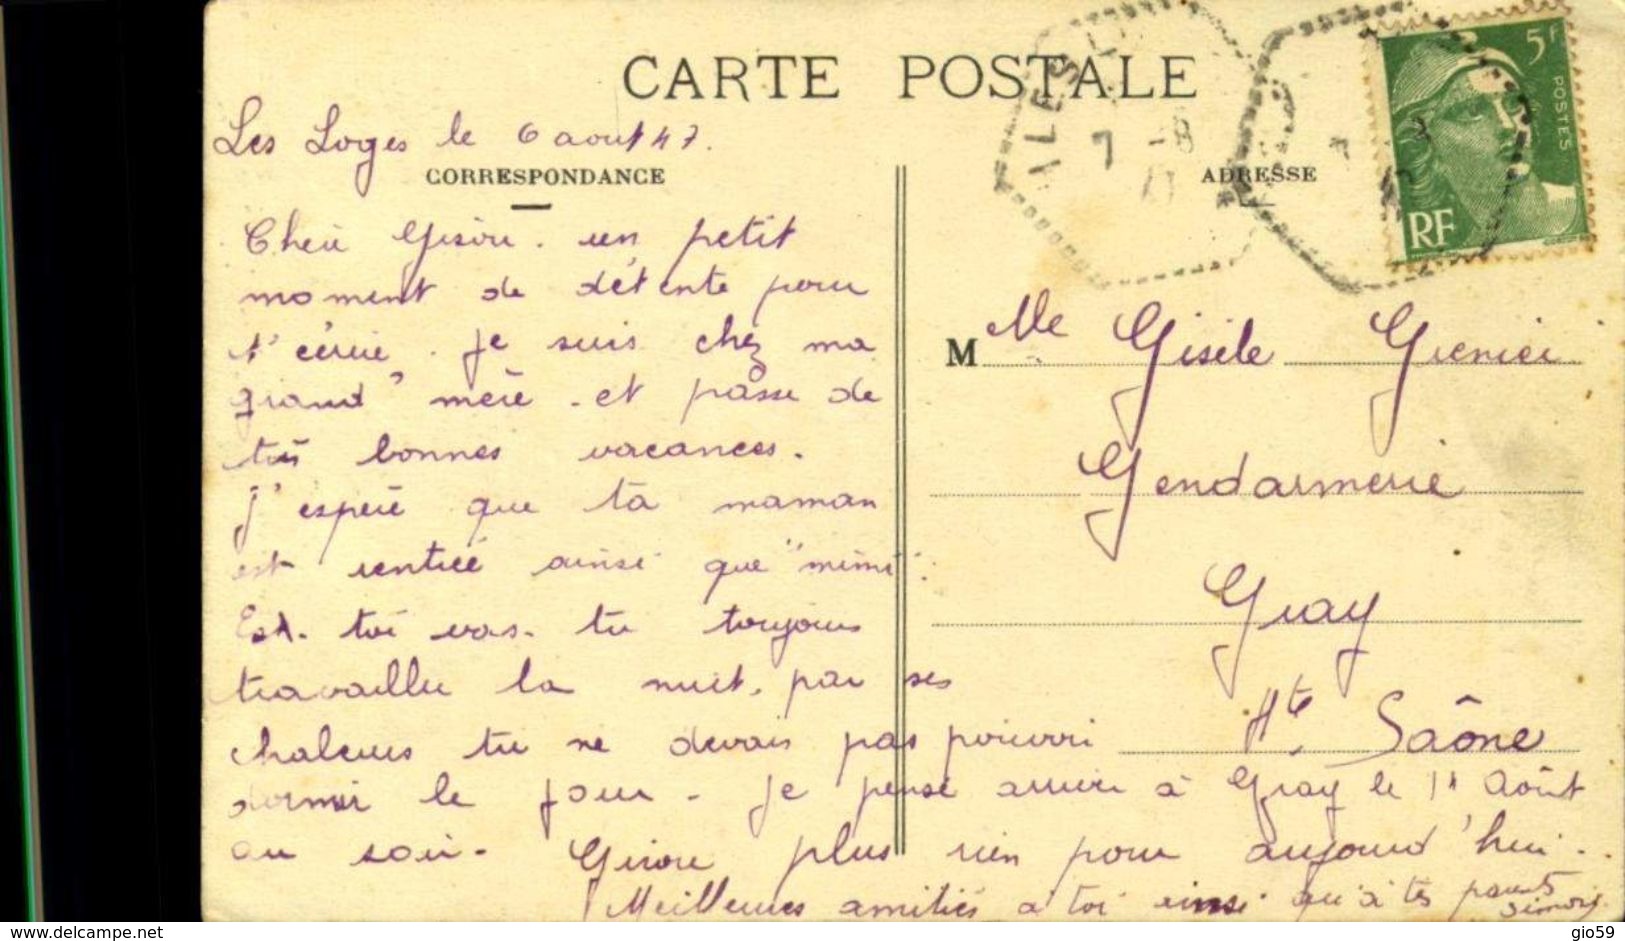 CARTE POSTALE
Les Loges le 6 aout 47.
CORRESPONDANCE
ADRESSE
ALES
7 -8
5F
POSTES
RF
un petit
moment de détente pour
t'écrire. Je suis chez ma
grand'mère. et passe de
très bonnes vacances.
J'espère que ta maman
est rentrée ainsi que "mimi".
toi vas-tu toujours
travailler la nuit, par ses
chaleurs tu ne devais pas pouvoir
dormir le jour. Je pense arriver à Gray le 11 Août
au soir. plus rien pour aujourd'hui.
Meilleures amitiés à toi ainsi qu'à tes parents
Simone
M Mlle Gisèle Grenier
Gendarmerie
Gray
Hte Saône
gio59